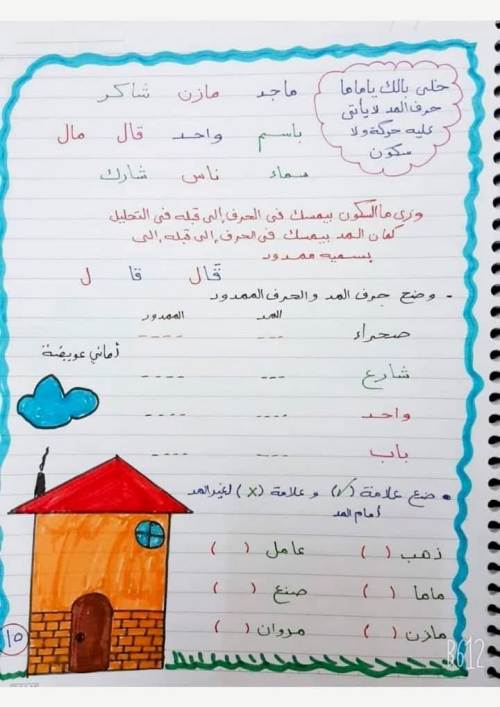 خلى بالك ياماما
حرف المد لا يأتى
عليه حركة ولا
سكون
ماجد مازن شاكر
باسم واحد قال مال
سماء ناس شارك
وزى ما السكون بيمسك فى الحرف إلى قبله فى التحليل
كمان المد بيمسك فى الحرف إلى قبله إلى
بسميه ممدود
قَال قا ل
- وضح حرف المد والحرف الممدود
المد الممدود
صحراء --- ----
أماني عويضة
شارع --- ----
واحد --- ----
باب --- ----
• ضع علامة (✓) و علامة (x) لغير المد
أمام المد
ذهب ( ) عامل ( )
ماما ( ) صنع ( )
مازن ( ) مروان ( )
١٥
B612